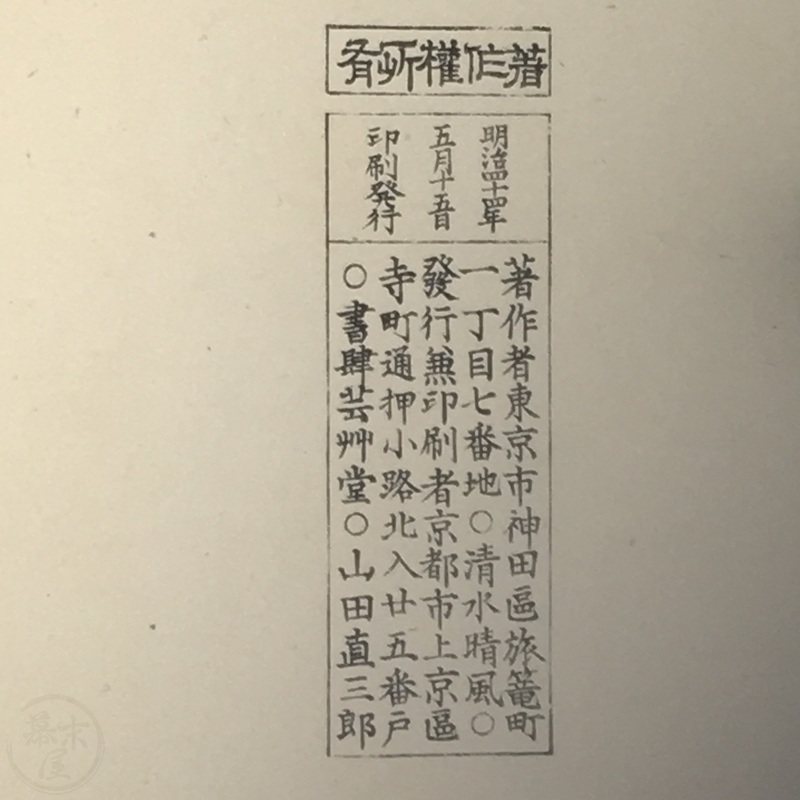 著作権所有
明治四十四年
五月十五日
印刷発行
著作者東京市神田區旅篭町
一丁目七番地○清水晴風○
發行兼印刷者京都市上京區
寺町通押小路北入廿五番戸
○書肆芸艸堂○山田直三郎
幕末屋